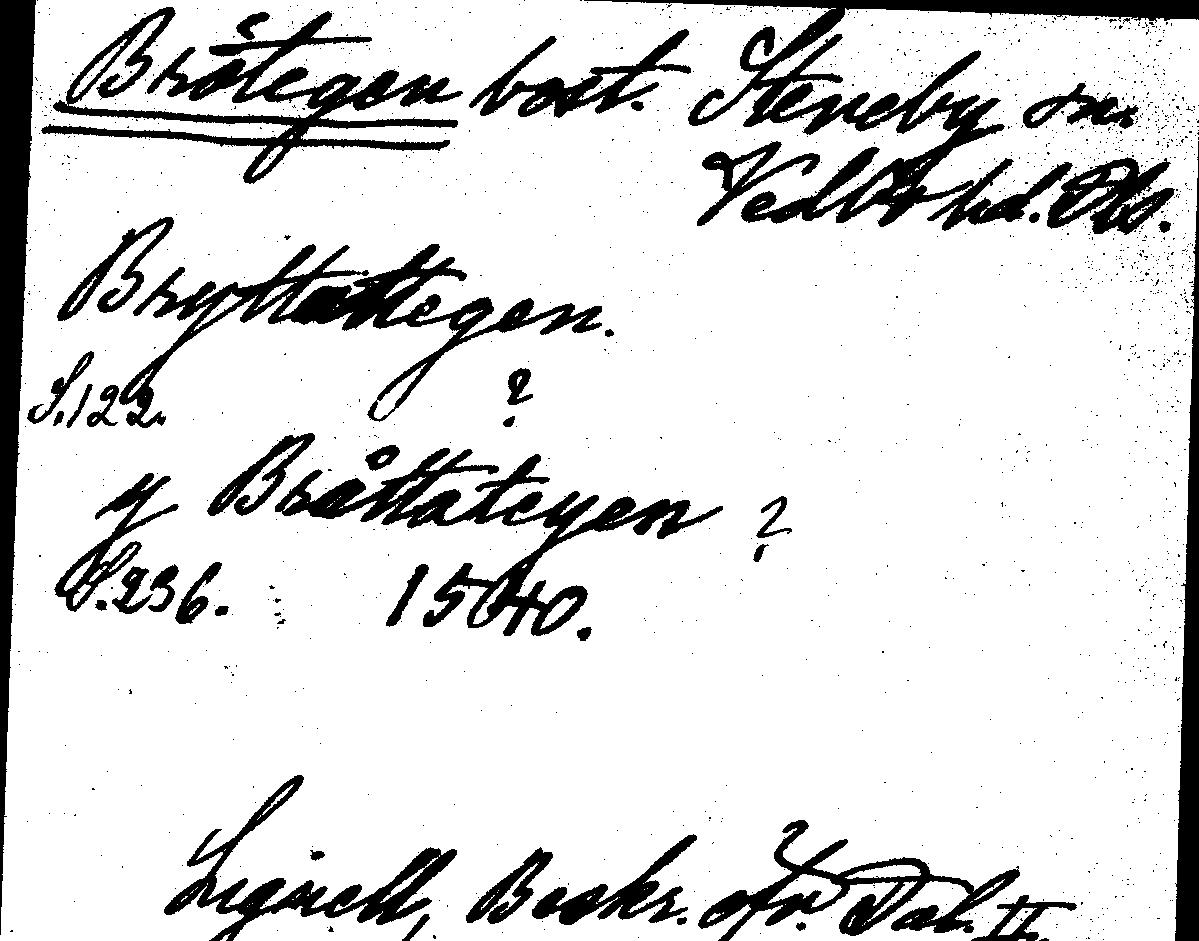 Bråtegen bost. Steneby sn.
Vedbo hd. Dls.
Bryttattegen.
S. 122. ?
y Bråttateyen ?
S. 236. 1540.
Lignell, Beskr. öfv. Dal. II.